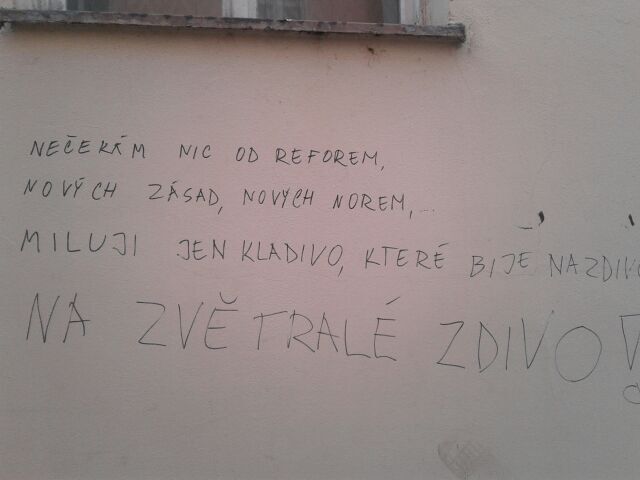 NEČEKÁM NIC OD REFOREM,
NOVÝCH ZÁSAD, NOVÝCH NOREM,...
MILUJI JEN KLADIVO, KTERÉ BIJE NAZDIVO
NA ZVĚTRALÉ ZDIVO!